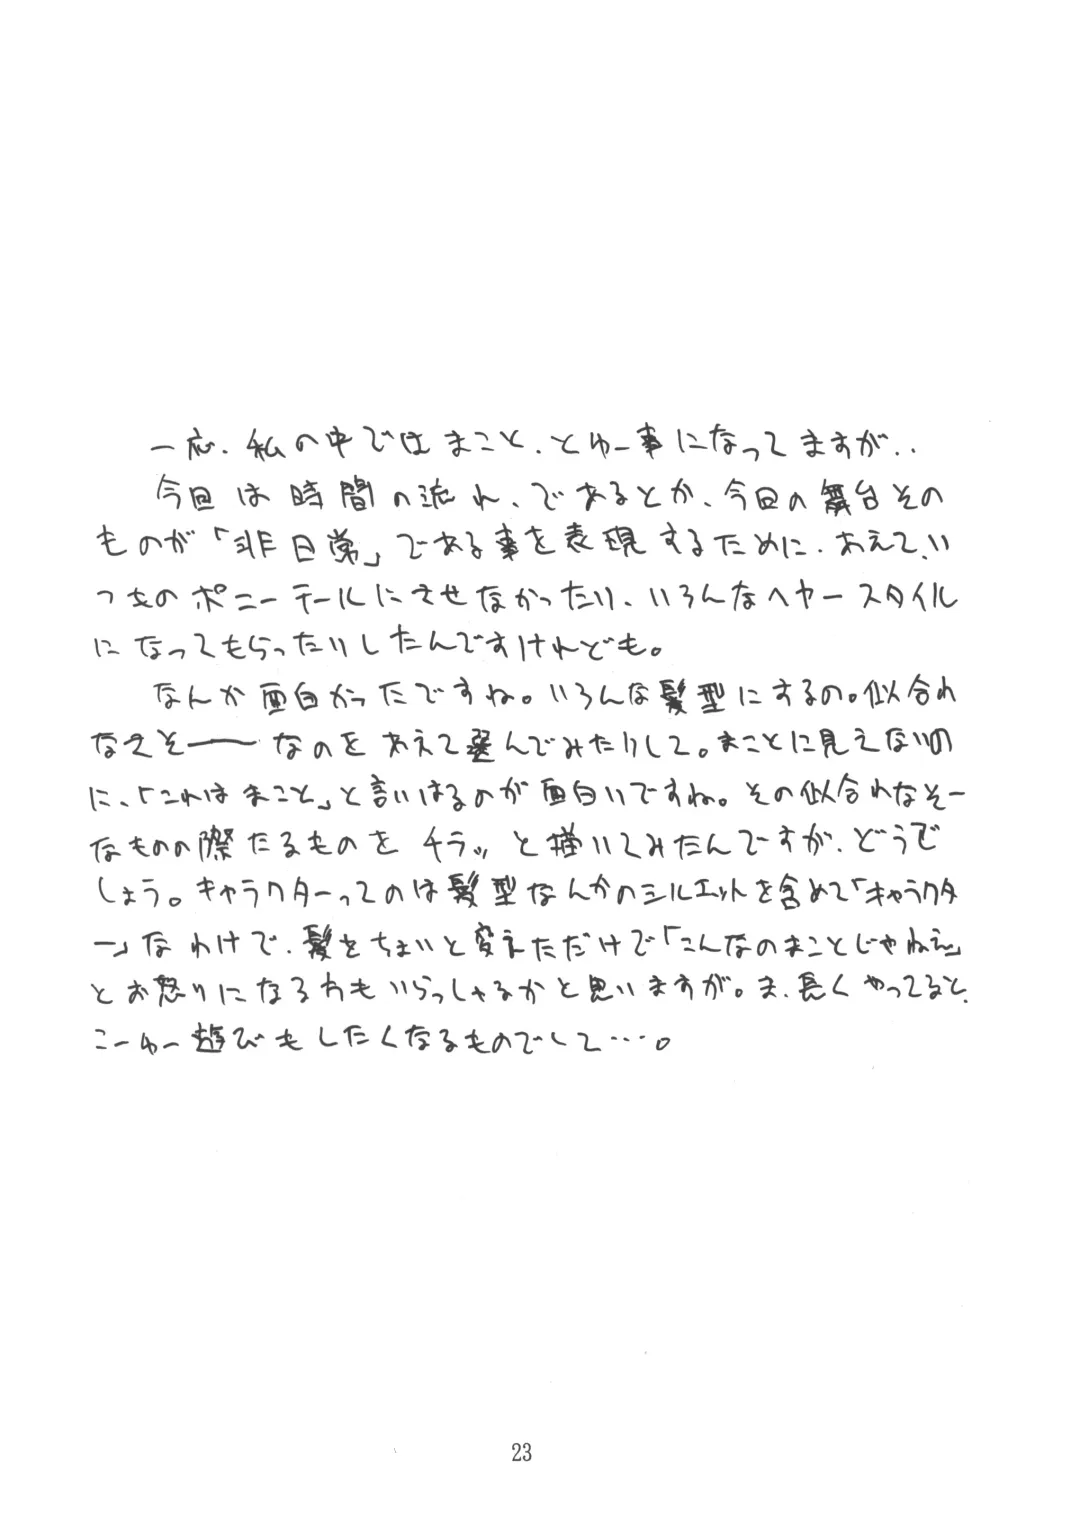 一応、私の中ではまこと、とゆー事になってますが、、
今回は時間の流れ、であるとか、今回の舞台その
ものが「非日常」である事を表現するために、あえて、い
つものポニーテールにさせなかったり、いろんなヘヤースタイル
になってもらったりしたんですけれども。
なんか面白かったですね。いろんな髪型にするの。似合わ
なさそーーなのをあえて選んでみたりして。まことに見えないの
に、「これはまこと」と言いはるのが面白いですね。その似合わなそー
なものの際たるものをチラッと描いてみたんですが、どうで
しょう。キャラクターってのは髪型なんかのシルエットを含めて「キャラクタ
ー」なわけで、髪をちょいと変えただけで「こんなのまことじゃねえ」
とお怒りになる方もいらっしゃるかと思いますが。ま、長くやってると、
こーゆー遊びもしたくなるものでして…。
23